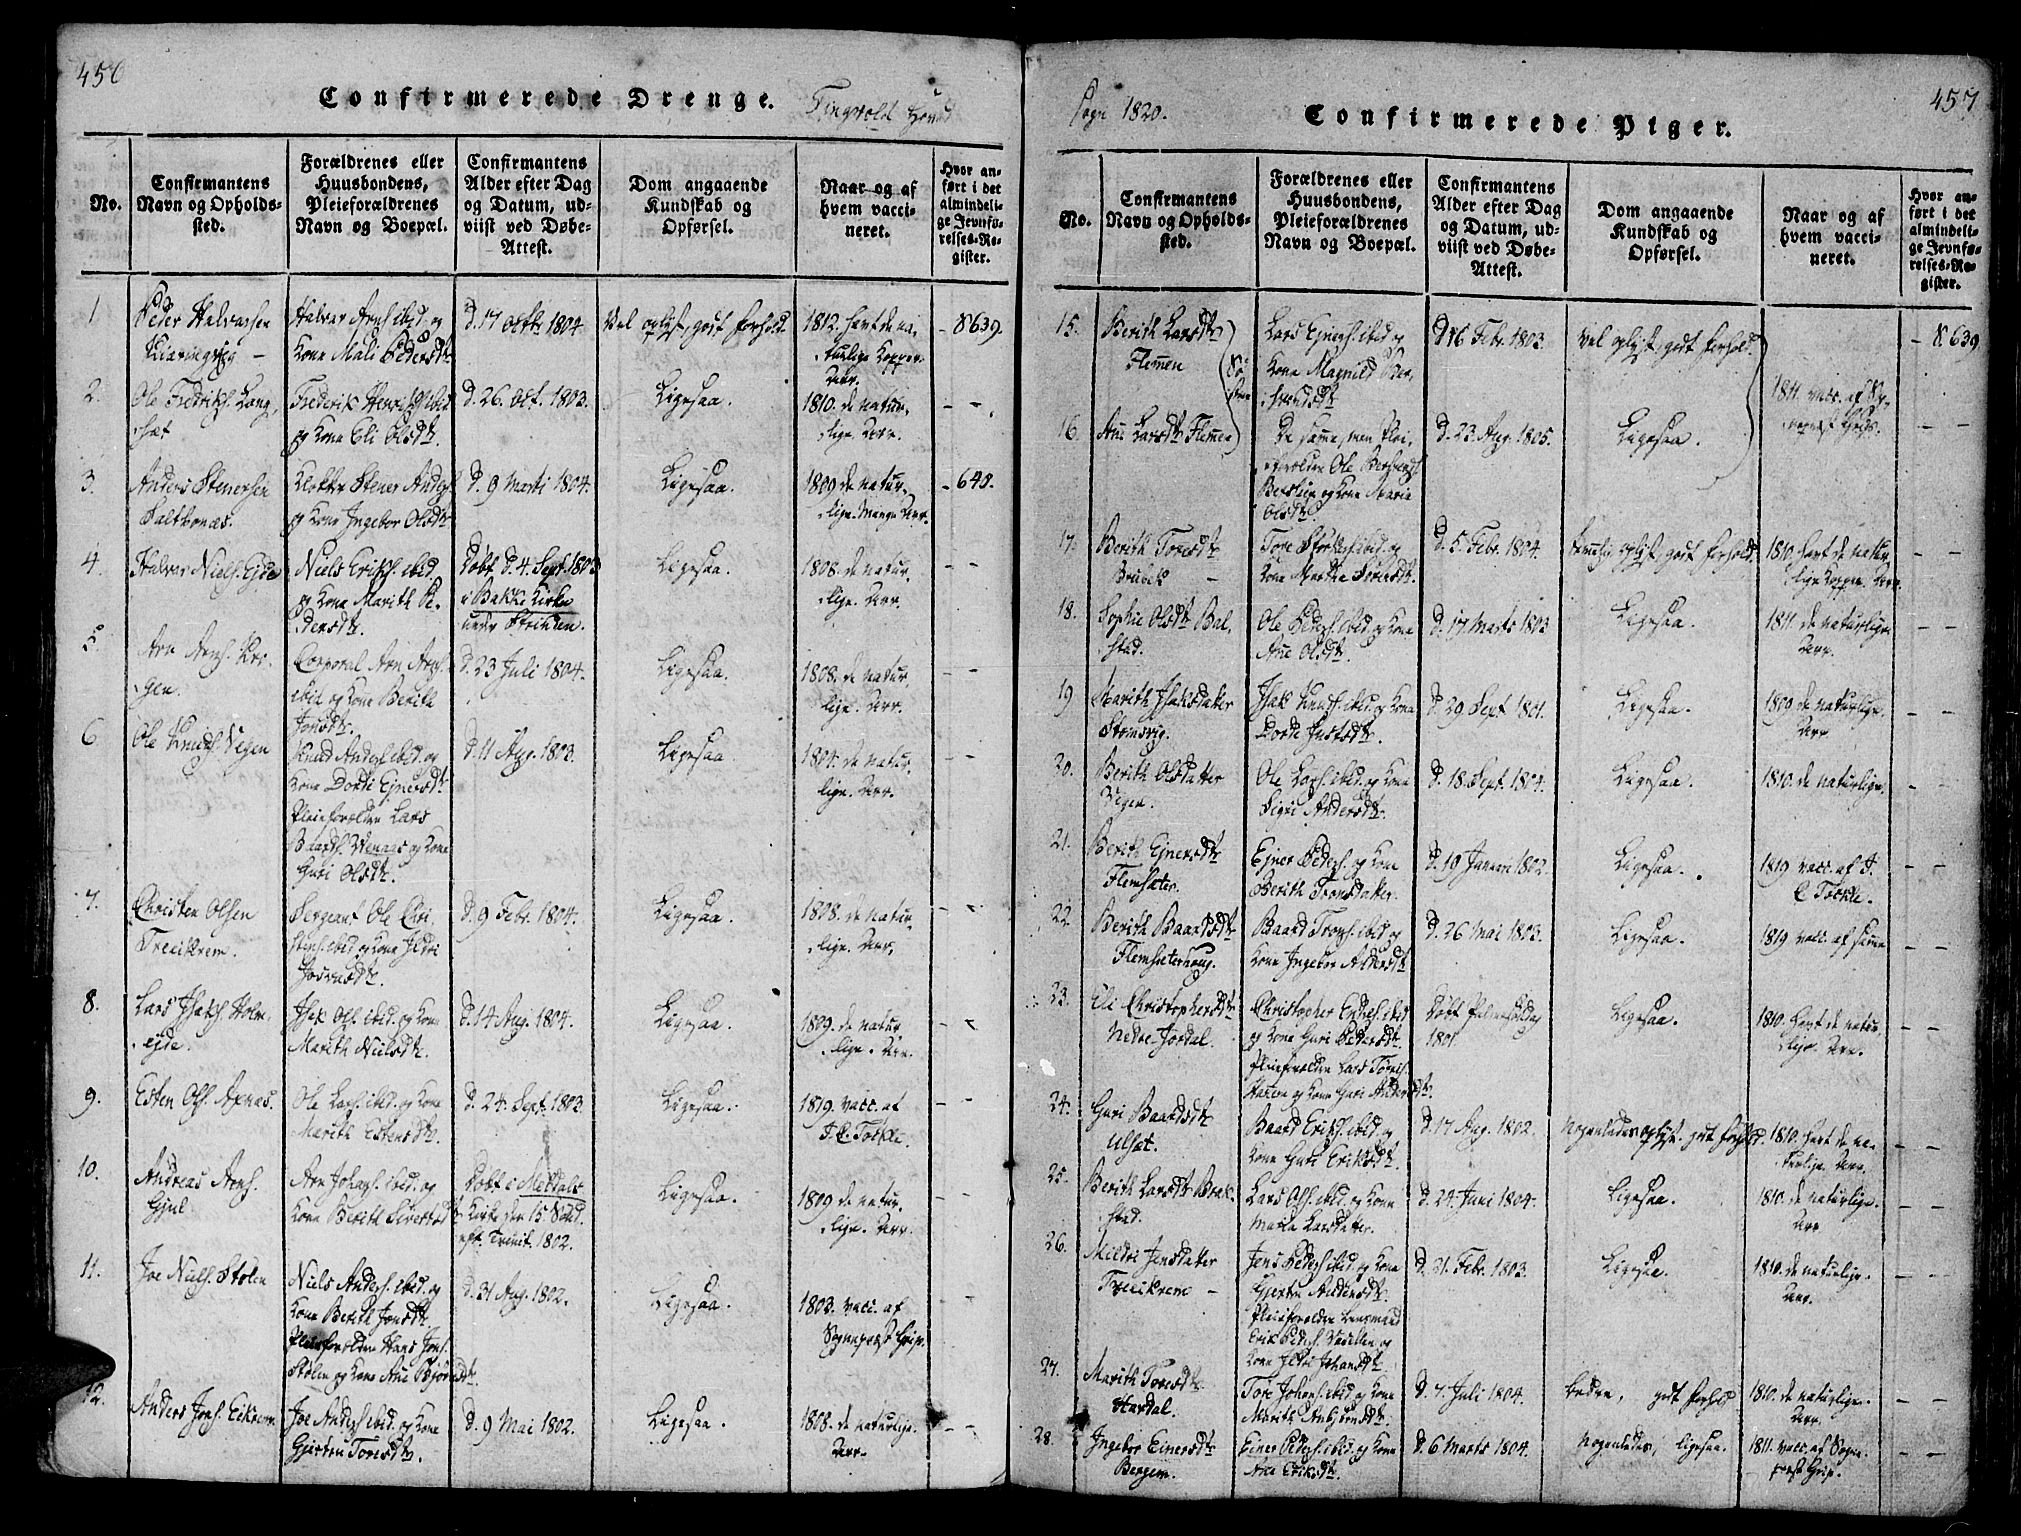 456
Confirmerede Drenge.
Tingvold Hoved
No.
Confirmantens Navn og Opholds-sted.
Forældrenes eller Huusbondens, Pleieforældrenes Navn og Boepæl.
Confirmantens Alder efter Dag og Datum, ud-viist ved Døbe-Attest.
Dom angaaende Kundskab og Opførsel.
Naar og af hvem vacci-neret.
Hvor an-ført i det almindeli-ge Jevnfø-relses-Re-gister.
1
Peder Halvorsen
Halvor Arns. ibid. og
Kone Mali Pedersdtr
d. 17 Octbr 1804
Vel oplyst, godt Forhold.
1812. havt de na-
turlige Kopper
Arr.
- 8639.
2.
Ole Fredriks. Lang-
sæt
Frederik Henriks. ibid
og Kone Eli Olsdtr.
d. 26. Oct. 1803.
Ligesaa.
1810. de natur-
lige. Arr.
- -
3.
Anders Stenersen
Saltbonæs.
Klokker Stener Anders.
og Kone Ingebor Olsdtr
d. 9 Marti 1804
Ligesaa.
1809 de natur-
lige. Mange Arr.
- 640.
4.
Halvor Niels. Ejde
Niels Eriks. ibid.
og Kone Marith Pe-
dersdtr.
Døbt d. 4. Sept. 1803
i Bakke Kirke
under Strinden.
Ligesaa.
1808. de natur-
lige. Arr.
- -
5
Arn Arns. Kor-
gen.
Corporal Arn Arns.
ibid og Kone Berith
Jonsdtr.
d. 23 Juli 1804.
Ligesaa.
1808. de natur-
lige. Arr.
- -
6
Ole Knuds. Vegen
Knud Anders. ibid. og
Kone Dordi Ejnersdtr
Pleieforældre Lars
Baards. Wenaas og Kone
Guri Olsdtr.
d. 11 Aug. 1803
Ligesaa
1804. de natur-
lige. Arr.
- -
7.
Christen Olsen
Treeikrem.
Sergeant Ole Chri-
stens. ibid. og Kone Ildri
d. 9 Febr. 1804.
Ligesaa.
1808. de natur-
lige. Arr.
- -
8.
Lars Isaks. Holm-
ejde.
Isak Ols. ibid. og Kone
Marith Nielsdtr.
d. 14 Aug. 1804.
Ligesaa.
1809. de natur-
lige. Arr.
- -
9.
Esten Ols. Axnæs.
Ole Lars. ibid. og Kone
Marith Estensdtr.
d. 24. Sept. 1803.
Ligesaa.
1819. vacc. af
J. C. Tockle.
- -
10.
Andreas Arns.
Gjul
Arn Johans. ibid. og
Kone Berith Sivertsdtr
Døbt i Meldals
Kirke den 15. Sønd.
eft. Trinit. 1802.
Ligesaa.
1809 de natur-
lige. Arr.
- -
11.
Joe Niels. Stolen
Niels Anders. ibid. og
Kone Berith Jonsdtr
Pleieforældre Hans Jons.
Stolen og Kone Ane
d. 31 Aug. 1802.
Ligesaa.
1803. vacc. af
Sognepræst Grip.
- -
12.
Anders Jons. Eikrem
Joe Anders. ibid. og Kone
Gjertru Toresdtr.
d. 9 Mai 1802.
Ligesaa.
1808. de naturlige.
Arr.
- -
Sogn 1820.
Confirmerede Piger.
457
No.
Confirmantens Navn og Opholds-sted.
Forældrenes eller Huusbondens, Pleieforældrenes Navn og Boepæl.
Confirmantens Alder efter Dag og Datum, ud-viist ved Døbe-Attest.
Dom angaaende Kundskab og Opførsel.
Naar og af hvem vacci-neret.
Hvor an-ført i det almindeli-ge Jevnfø-relses-Re-gister.
15.
Berith Larsdtr
Flemmen
Sø-
stre
Lars Ejners. ibid og
Kone Magnild
d. 16 Febr. 1803
Vel oplyst, godt Forhold.
- 8639
16.
Ane Larsdtr Flemmen
De samme, men Plei-
eforældre Ole
og Kone Maria
Olsdtr.
d. 23 Aug. 1805.
Ligesaa.
1811. vacc. af So-
gnepræst Grip.
- -
17.
Berith Toresdtr
Brubek
Tore ibid. og
Kone Martha Toresdtr.
d. 5. Febr. 1804.
oplyst, godt Forhold.
1810 havt de natur-
lige Kopper. Arr.
- -
18.
Sophie Olsdtr Bal-
stad.
Ole Peders. ibid. og Kone
Ane Olsdtr.
d. 17 Marts 1803
Ligesaa.
1811. de naturlige
Arr.
- -
19
Marith Isaksdatter
Stensvig.
Isak Knuds. ibid. og Kone
Dorde Justsdtr.
d. 29 Sept 1801.
Ligesaa.
1809 de naturlige.
Arr
- -
20.
Berith Olsdatter
Vegen.
Ole Lars. ibid. og Kone
Sigri Andersdtr.
d. 18. Sept. 1804.
Ligesaa.
1810. de naturlige.
- -
21.
Berith Ejnersdtr
Flemsæter.
Ejner Peders. og Kone
Berith Tronsdatter.
d. 19 Januari 1802.
Ligesaa.
1819 vacc. af J.
C Tockle.
- -
22.
Berith Baardsdtr
Flemsæterhaug.
Baard Trons. ibid og
Kone Ingebor Andersdtr
d. 26 Mai 1803.
Ligesaa.
1819 vacc. af samme
- -
23.
Eli Christophersdtr
Nedre-Jordal.
Christopher ibid
og Kone Guri Pedersdtr.
Pleieforældre Lars
og Kone Guri Andersdtr.
Døbt
1801.
Ligesaa.
1810. havt de natur-
lige. Arr.
- -
24.
Guri Baardsdtr
Ulsæt.
Baard Eriks. ibid. og
Kone Guri Eriksdtr.
d. 17 Aug. 1802.
Nogenledes oplyst. godt Forhold.
1810. havt de na-
turlige. Arr.
25.
Berith Larsdtr Bræk-
stad.
Lars Ols. ibid. og Kone
Maria Larsdatter.
d. 24 Juni 1804.
Ligesaa.
1810. de naturlige.
Arr
- -
26.
Mildri Jensdatter
Treeikrem -
Jens Peders. ibid. og Kone
Gjertru Andersdtr.
Pleieforældre Lensmand
Erik Peders. og
Kone Ildri Johansdtr.
d. 21. Febr. 1803.
Ligesaa.
1810. de naturlige.
Arr.
- -
27.
Marith Toresdtr.
Hardal.
Tore Johans. ibid. og Kone
Marith
d. 7. Juli 1804.
Bedre, godt Forhold
1810. de naturlige.
Arr.
- -
28
Ingebor Einersdtr
Bergem.
Einer Peders. ibid. og Kone
Ane Eriksdtr.
d. 6 Marts 1804.
Nogenledes, ligesaa.
1811. vacc. af Sogne-
præst Grip.
- -